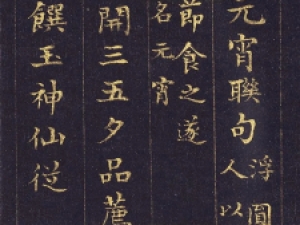 元宵聯句
浮圓
人以
節食之遂
名元宵
開三五夕品薦
饌玉神仙従